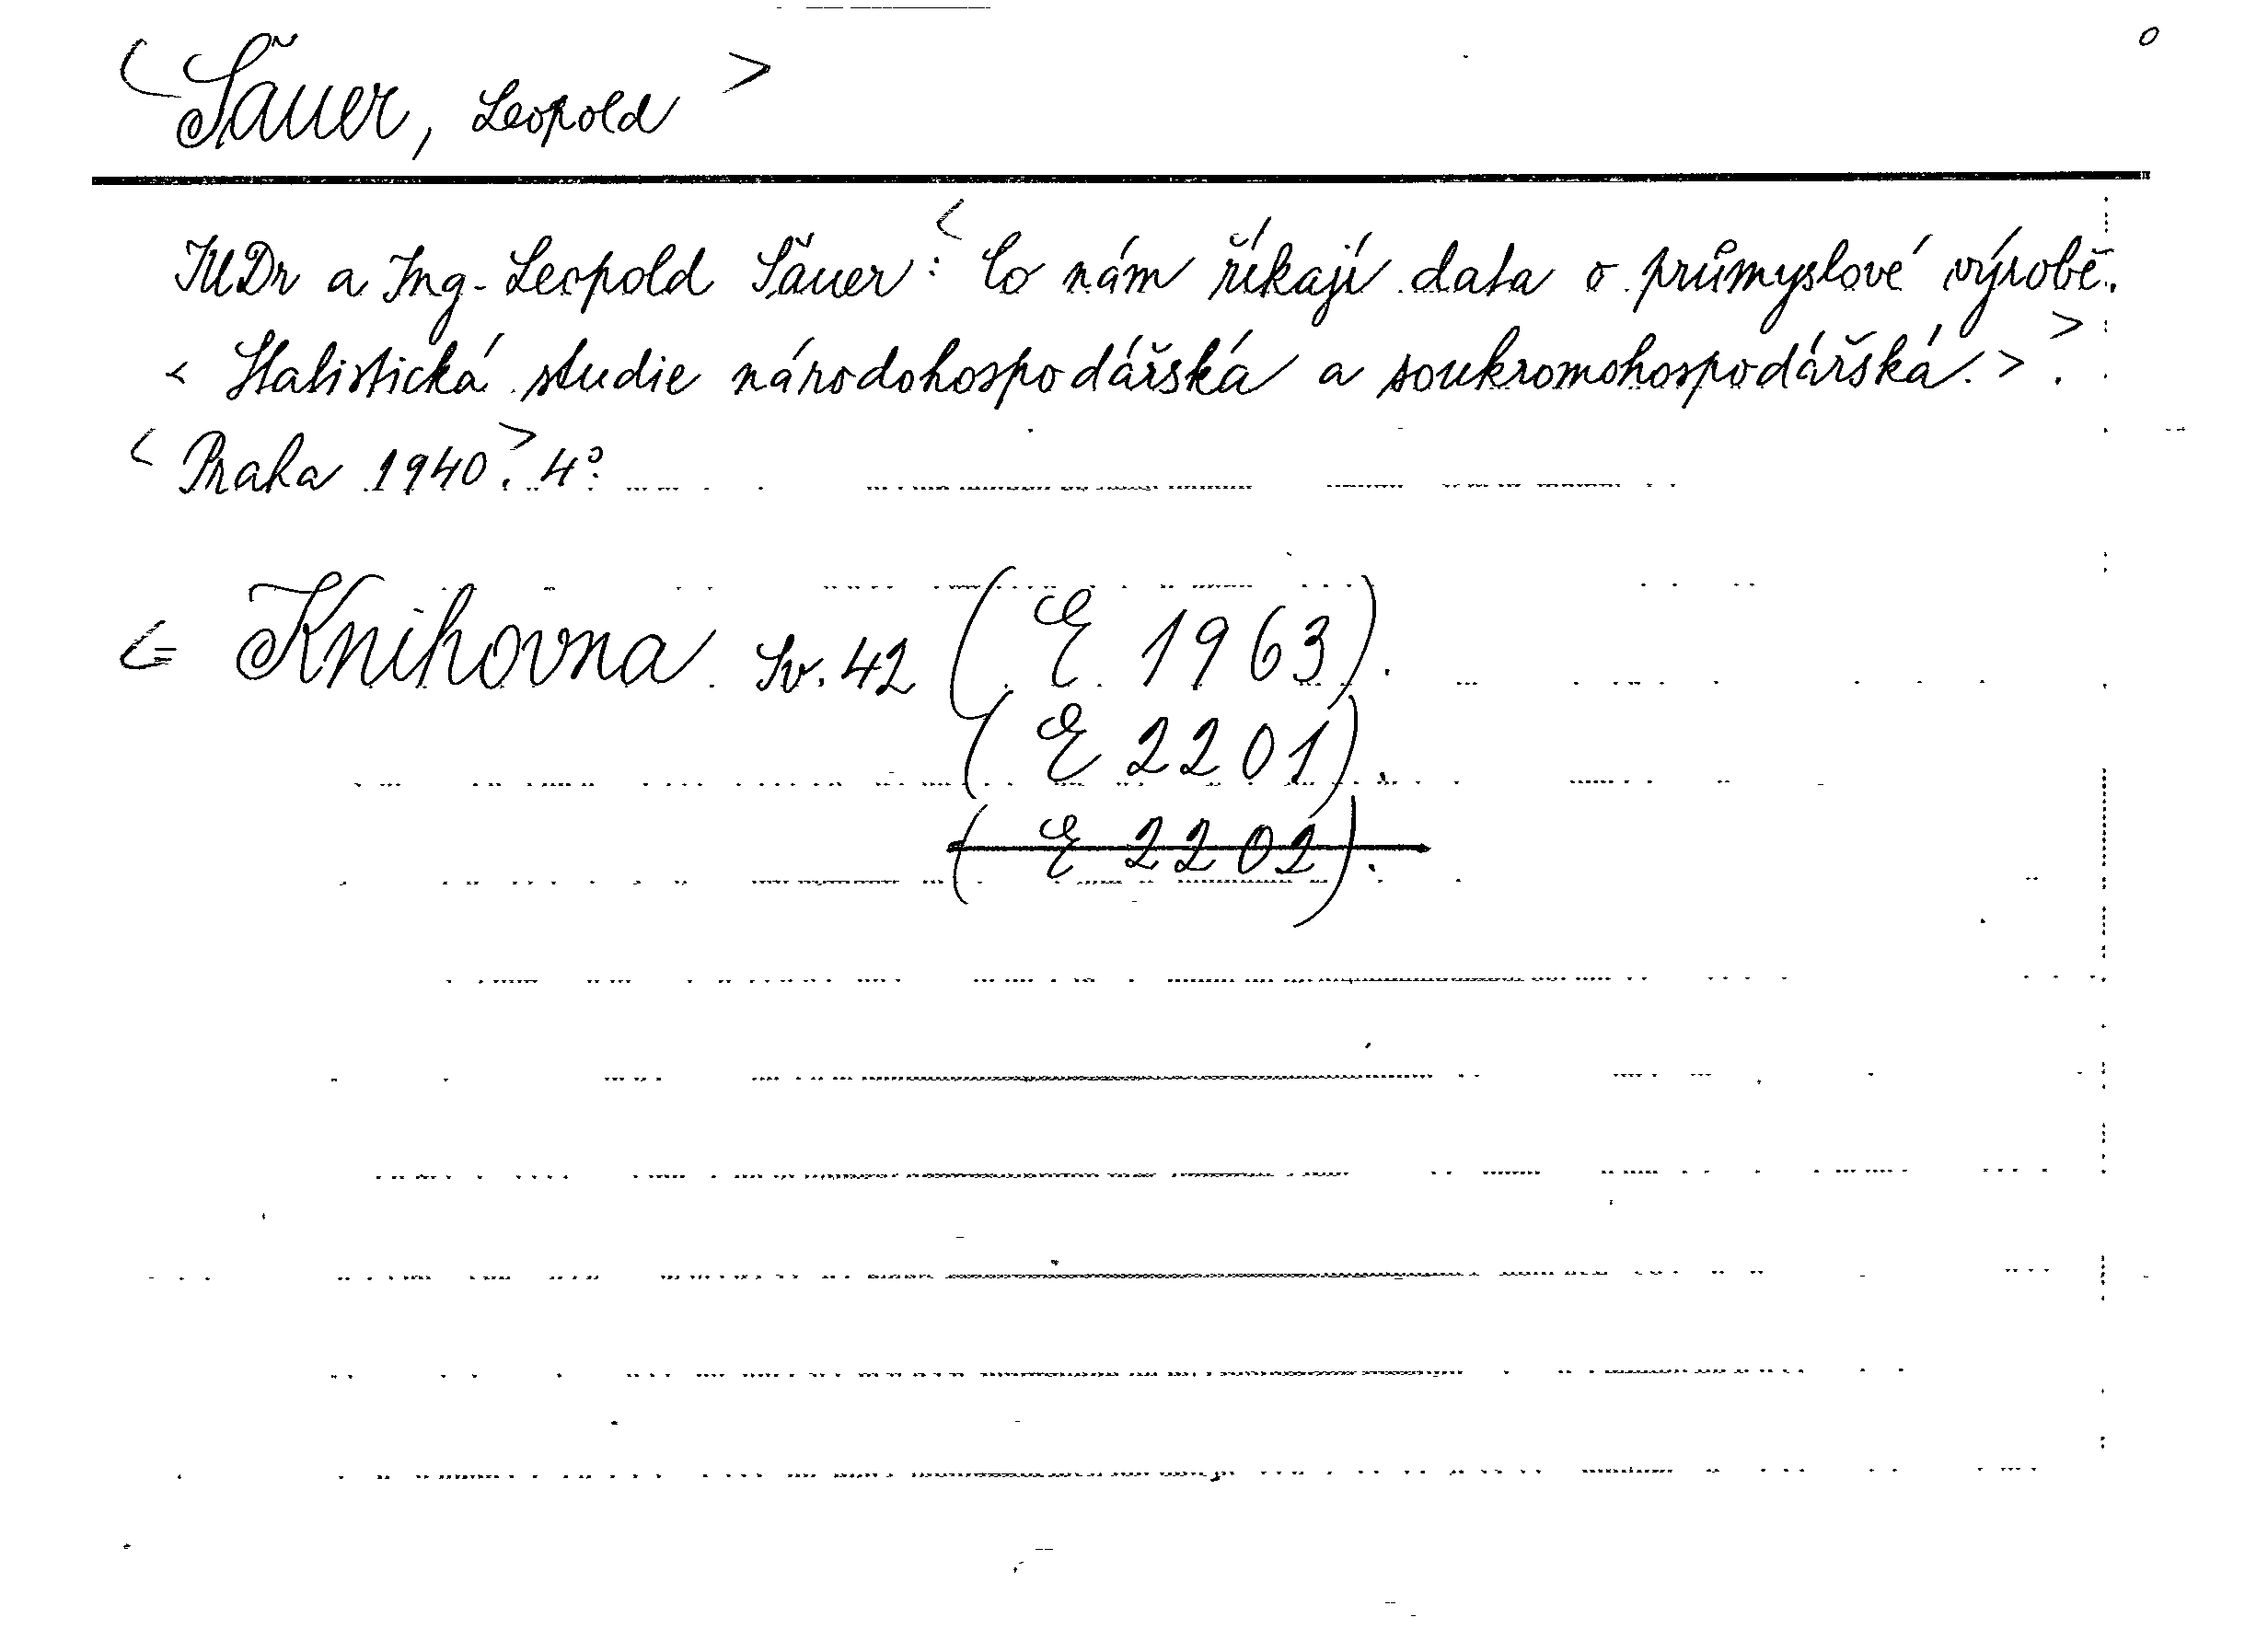 < Šauer, Leopold > o
JUDr a Ing. Leopold Šauer: < Co nám říkají data o průmyslové výrobě.
< Statistická studie národohospodářská a soukromohospodářská. > > .
< Praha 1940 > . 4°.
<= Knihovna. Sv. 42 ( E 1963 ).
( E 2201 ).
( E 2202 ).